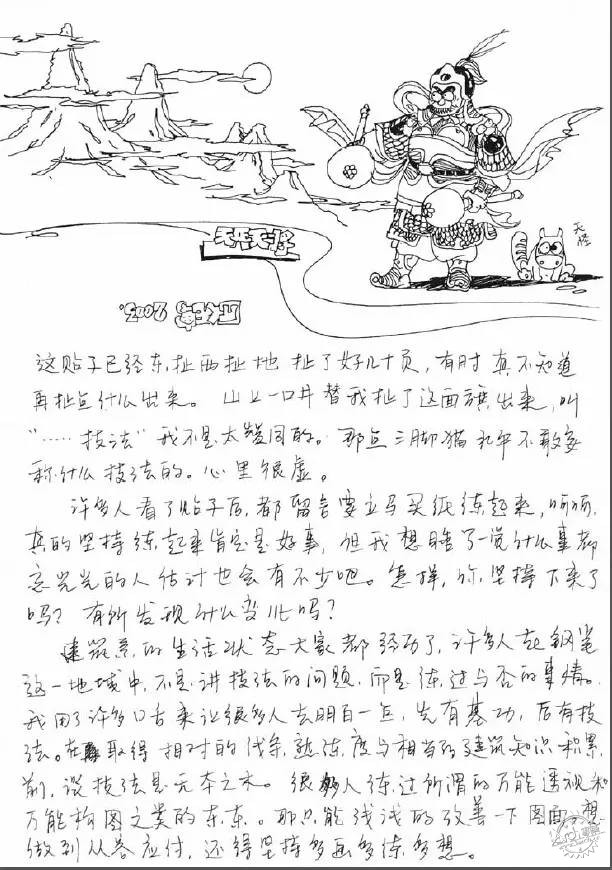 天兵天将
天降
正红军 2007.
这贴子已经东扯西扯地 扯了好几十页，有时 真不知道
再扯点什么出来。 山上一口井替我扯了这面旗出来，叫
“……技法”我不是太赞同的。 那点三脚猫 水平不敢妄
称什么技法的。心里很虚。
许多人看了贴子后，都留言要立马买纸练起来，呵呵，
真的坚持练起来肯定是好事，但我想睡了一觉什么事都
忘光光的人估计也会有不少吧。怎样，你坚持下来了
吗？ 有所发现什么变化吗？
建筑系的生活状态大家都经历了，许多人在钢笔
这一地域中，不是讲技法的问题，而是练过与否的事情。
我用了许多口舌来让很多人去明白一点，先有基功，后有技
法。在取得相对的线条熟练度与相当的建筑知识积累
前，谈技法是无本之木。 很多人练过所谓的万能透视和
万能构图之类的东东。那只能浅浅的改善一下图面，想
做到从容应付，还得坚持多画多练多想。